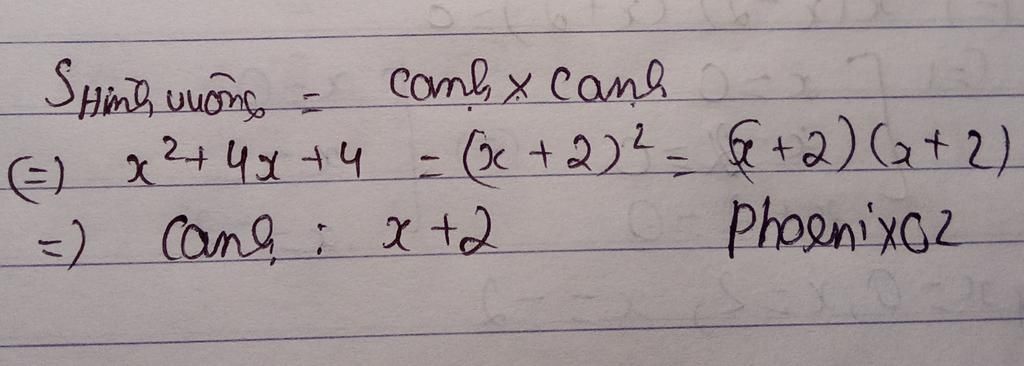 S Hình vuông = cạnh x cạnh
(=) x²+ 4x + 4 = (x + 2)² = (x + 2) (x + 2)
=) Cạnh : x + 2 Phoenix02